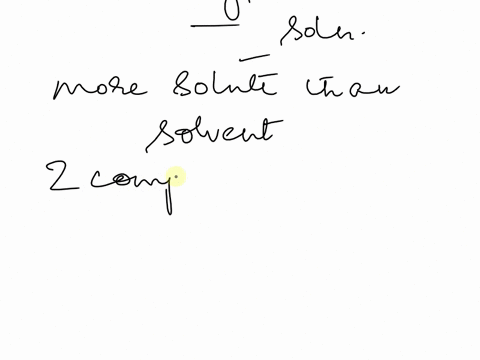 soln.
more solute than
solvent
2 comp